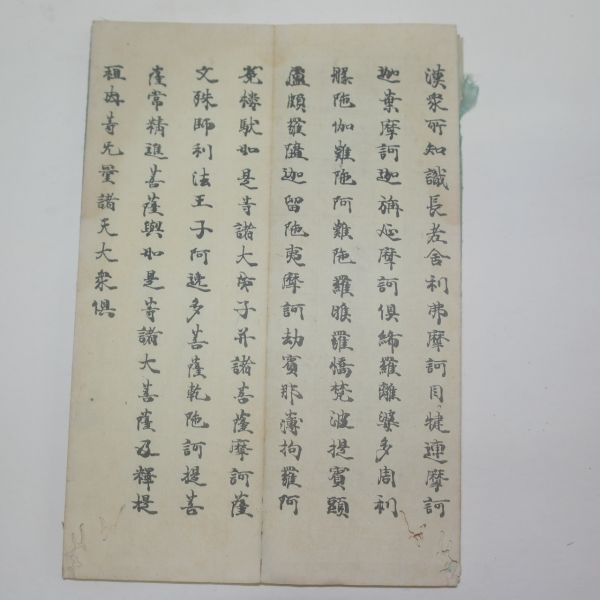 漢衆所知識長老舍利弗摩訶目犍連摩訶
迦葉摩訶迦旃延摩訶俱絺羅離婆多周利
槃陁伽難陁阿難陁羅睺羅憍梵波提賓頭
盧頗羅墮迦留陁夷摩訶劫賓那薄拘羅阿
㝹樓馱如是等諸大弟子并諸菩薩摩訶薩
文殊師利法王子阿逸多菩薩乾陁訶提菩
薩常精進菩薩與如是等諸大菩薩及釋提
桓因等无量諸天大衆俱